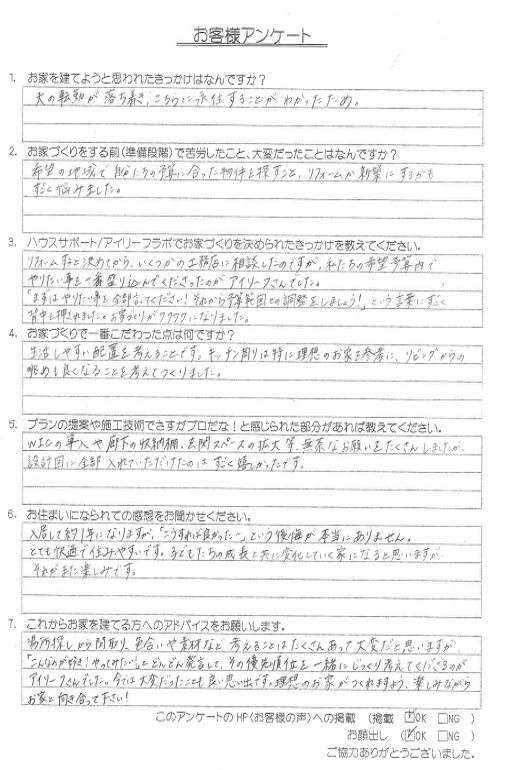 お客様アンケート
1. お家を建てようと思われたきっかけはなんですか？
夫の転勤が落ち着き、こちらに永住することがわかったため。
2. お家づくりをする前（準備段階）で苦労したこと、大変だったことはなんですか？
希望の地域で自分たちの予算に合った物件を探すこと、リフォームか新築にするかも
すごく悩みました。
3. ハウスサポート/アイリーフラボでお家づくりを決められたきっかけを教えてください。
リフォームすると決めてから、いくつかの工務店に相談したのですが、私たちの希望予算内で
やりたい事を一番盛り込んでくださったのがアイリーフさんでした。
「まずはやりたい事を全部言ってください！それから予算範囲との調整をしましょう！」という言葉にすごく
背中を押されました。お家づくりがワクワクになりました。
4. お家づくりで一番こだわった点は何ですか？
生活しやすい配置を考えることです。キッチン周りは特に理想のお家を参考に、リビングからの
眺めも良くなることを考えてつくりました。
5. プランの提案や施工技術でさすがプロだな！と感じられた部分があれば教えてください。
WICの導入や廊下の収納棚、玄関スペースの拡大等、無茶なお願いをたくさんしましたが、
設計図に全部入れていただけたのはすごく嬉しかったです。
6. お住まいになられての感想をお聞かせください。
入居して約1年になりますが、「こうすれば良かったー」という後悔が本当にありません。
とても快適で住みやすいです。子どもたちの成長と共に変化していく家になると思いますが、
それがまた楽しみです。
7. これからお家を建てる方へのアドバイスをお願いします。
場所探しから間取り、色合いや素材など考えることはたくさんあって大変だと思いますが、
「こんなのが好き！やってみたい」とどんどん発言して、その優先順位を一緒にじっくり考えてくださるのが
アイリーフさんでした。今では大変だったことも良い思い出です。理想のお家がつくれますよう、楽しみながら
お家と向き合って下さい！
このアンケートのHP（お客様の声）への掲載 （掲載 ☑OK □NG ）
お顔出し （☑OK □NG ）
ご協力ありがとうございました。